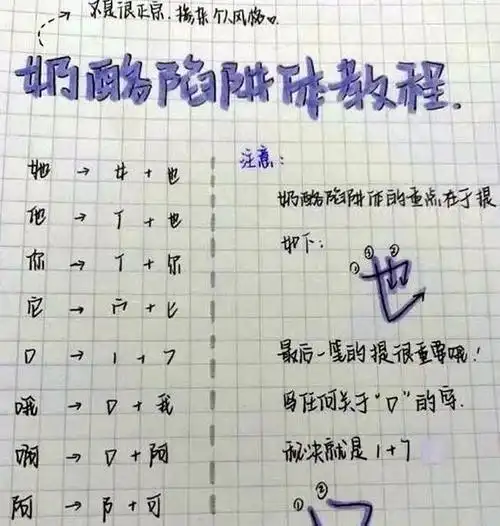 不是很正宗.掺杂个人风格。
奶酪陷阱体教程.
她 → 女 + 也
他 → 亻 + 也
你 → 亻 + 尔
它 → 宀 + 匕
口 → 1 + 7
哦 → 口 + 我
啊 → 口 + 阿
阿 → 阝 + 可
注意:
奶酪陷阱体的重点在于提
如下:
① ③ ②
也
最后一笔的提很重要哦!
写任何关于“口”的字.
秘决就是 1 + 7
① ②